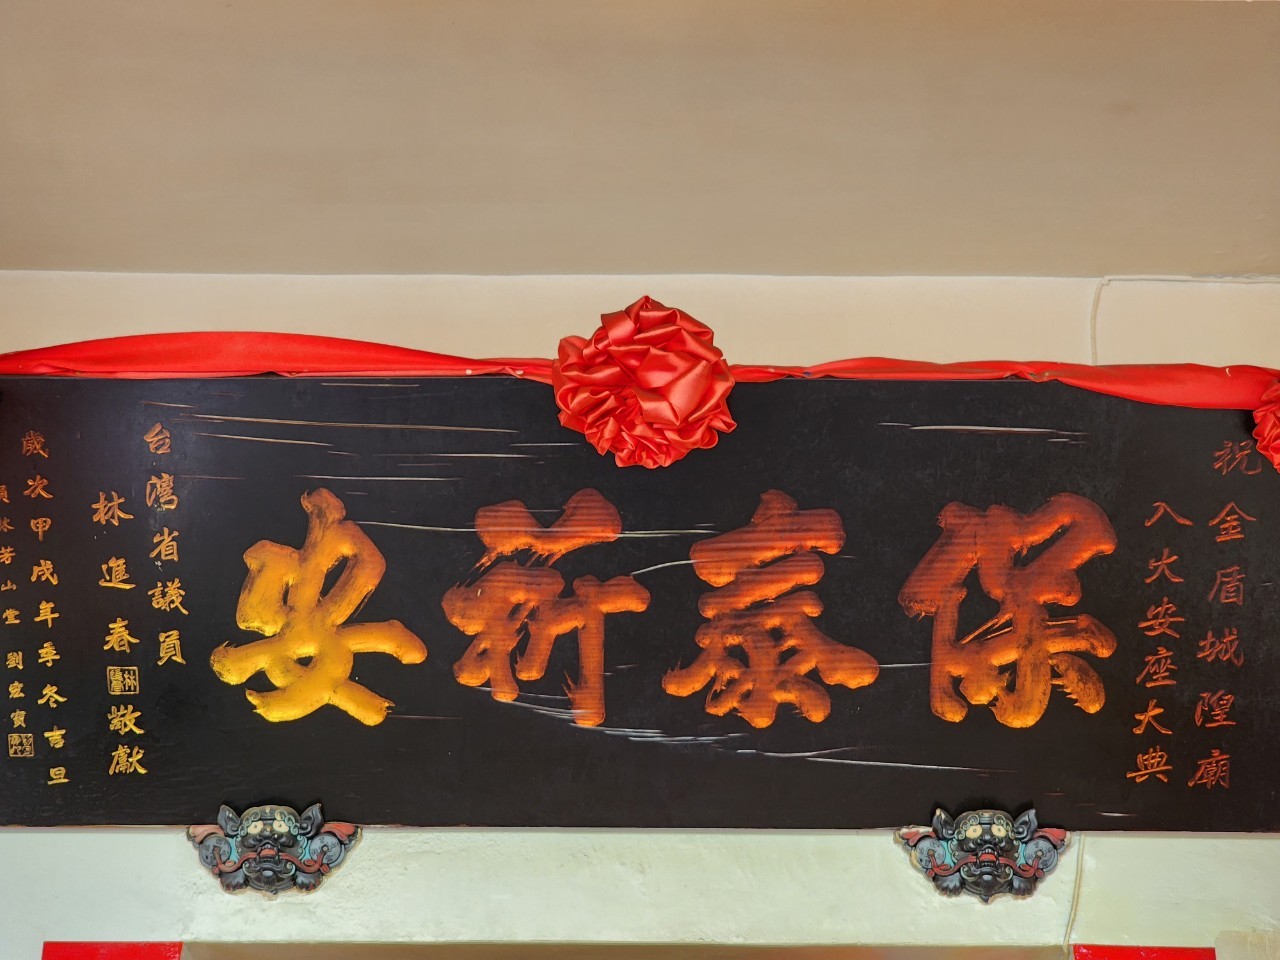 祝金盾城隍廟
入火安座大典
保泰祈安
台灣省議員
林進春敬獻
歲次甲戌年季冬吉旦
林芳山堂劉宏寶